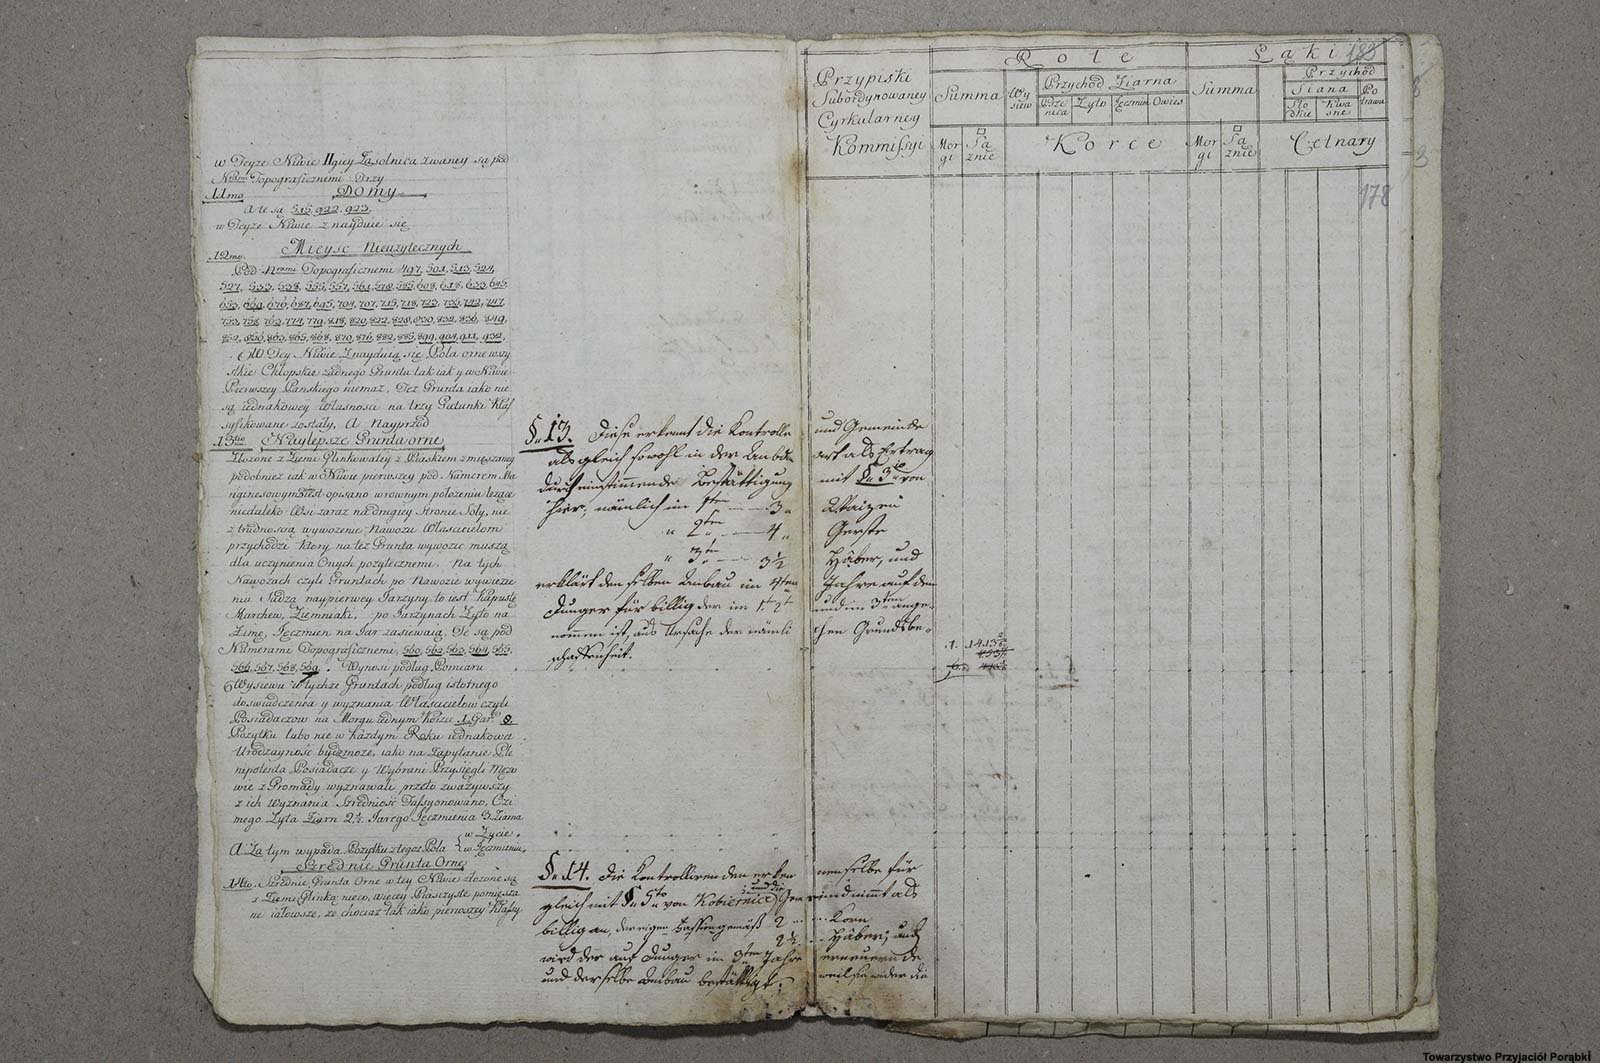 w Teyże Niwie IIgiey Zasolnica zwaney są pod
Nrami Topograficznemi Trzy
11mo Domy
A te są 515, 922, 923.
w Teyże Niwie znayduie się
12mo Mieysc Nieużytecznych
Pod Nrami Topograficznemi 497, 501, 513, 524,
527, 533, 538, 555, 557, 561, 578, 585, 608, 618, 633, 645,
653, 669, 676, 687, 695, 704, 707, 715, 718, 723, 736, 742, 747
753, 758, 763, 774, 779, 818, 820, 822, 828, 830, 832, 836, 849,
852, 856, 863, 865, 868, 870, 876, 882, 885, 899, 904, 911, 932,
W Tey Niwie Znayduią się Pola orne wszy
stkie Chłopskie żadnego Gruntu tak iak y w Niwie
Pierwszey Pańskiego niemasz. Też Grunta iako nie
są iednakowey Własności na trzy Gatunki Klas
syfikowane zostały, A Nayprzód
13tio Naylepsze Grunta orne
Złożone z Ziemi Glinkowatey z Piaskiem zmięszaney
podobnież iak w Niwie pierwszey pod Numerem Ma
rginesowym iest opisano w rownym położeniu leżące
niedaleko Wsi zaraz na drugiey Stronie Soły, nie
z trudnością wywożenie Nawozu Właścicielom
przychodzi ktory na też Grunta wywozić muszą
dla uczynienia Onych pożytecznemi. Na tych
Nawozach czyli Gruntach po Nawozie wywiezie
niu Sadzą naypierwey Jarzyny to iest Kapustę
Marchew, Ziemniaki, po Jarzynach Zyto na
Zimę, Jęczmień na Jar zasiewaią. Te są pod
Numerami Topograficznemi, 560, 562, 563, 564, 565,
566, 567, 568, 569. Wynosi podług Pomiaru
Wysiewu w tychże Gruntach podług istotnego
doświadczenia y wyznania Właścicielow czyli
Posiadaczow na Morgu iednym Korzec 1 Gar. 8
Pożytku lubo nie w każdym Roku iednakowa
Urodzayność bydź może, iako na Zapytanie Ple
nipotenta Posiadacze y Wybrani Przysięgli Mężo
wie z Gromady wyznawali przeto zważywszy
z ich Wyznania Szrednność Fassyonowano, Ozi
mego Zyta Ziarn 2 ½ Jarego Jęczmienia 3 Ziarna
w Zycie
A Zatym wypada Pożytku z tegoż Pola w Jęczmieniu,
Szrednie Grunta Orne
14to Szrednie Grunta Orne w tey Niwie złożone są
z Ziemi Glinką nieco, więcey Piaszczyste pomięsza
ne iałowsze, że chociaż tak iako pierwszey Klassy
§. 13. Diese erkennt die Kontrolle und Gemeinde
als gleich sowohl in der Anbau art als Ertrag
durch einstimmende Bestättigung mit §. 3io von
hier; nämlich im 1ten 3 Waizen
2ten 4 Gerste
3ten 3½ Haber, und
erklärt den selben Anbau im 4ten Jahre auf dem
Dunger für billig der im 1ten 2ten und im 3ten ange
nommen ist, aus Ursache der nämli chen Grundsbe
schaffenheit.
§. 14. Die Kontrollirenden erken nen selbe für
gleich mit §. 5to von Kobiernice und nimmt als
billig an, der eigen Fassion gemäß 2 Korn
2½ Haber; und
wird der auf Dunger im 3ten Jahre
und derselbe Anbau bestättigt; weil sie wider die
Przypiski
Subordynowaney
Cyrkularney
Kommissyi
Pole
Summa
Wy
siew
Przychód Ziarna
Psze
nica
Zyto
Jęczmin
Owies
Mor
gi
□
Są
żnie
Korce
Łąki
183
Summa
Przychód
Siana
Sło
dkie
Kwa
śne
Po
trawu
Mor
gi
□
Są
żnie
Cetnary
178
Towarzystwo Przyjaciół Porąbki